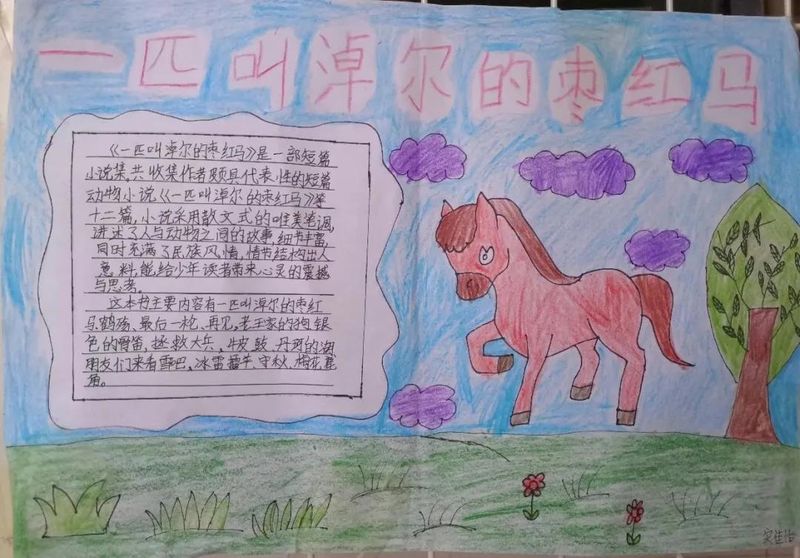 一匹叫淖尔的枣红马
《一匹叫淖尔的枣红马》是一部短篇
小说集,共收集作者颇具代表性的短篇
动物小说《一匹叫淖尔的枣红马》等
十二篇,小说采用散文式的唯美笔调,
讲述了人与动物之间的故事,细节丰富,
同时充满了民族风情,情节结构出人
意料,能给少年读者带来心灵的震撼
与思考。
这本书主要内容有一匹叫淖尔的枣红
马、鹤殇、最后一枪、再见,老王家的狗、银
色的骨笛,拯救大兵,牛皮鼓,丹珂的湖
朋友们来看雪巴,冰雷,守秋,梅花
角。